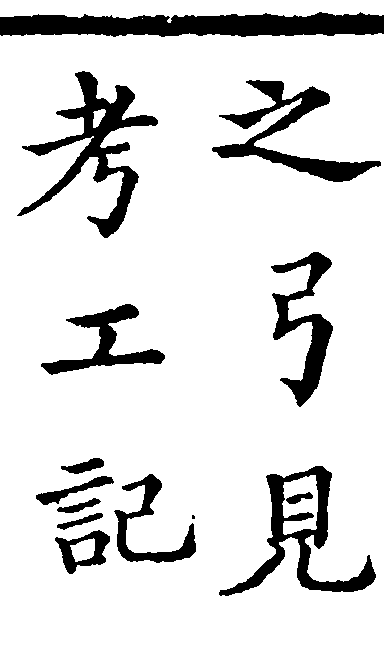 之弓見
考工記